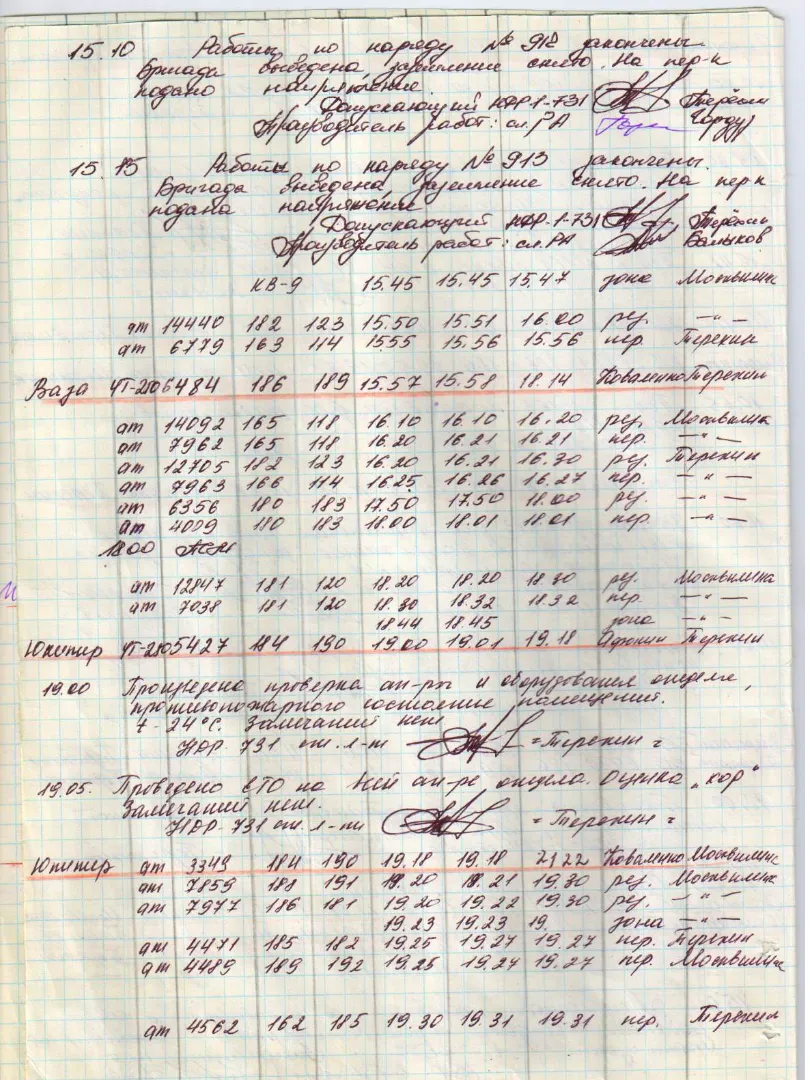 15.10 Работы по наряду № 912 закончены.
Бригада выведена, заземление снято. На пер-к
подано напряжение.
Допускающий НДР-1-731 Терёхин
Производитель работ: сл. РА
15.15 Работы по наряду № 913 закончены.
Бригада выведена, заземление снято. На пер-к
подано напряжение
Допускающий НДР-1-731 Терёхин
Производитель работ: сл. РА Балыков
КВ-9 15.45 15.45 15.47 зона
ат 14440 182 123 15.50 15.51 16.00 рез. —"—
ат 6779 163 114 15.55 15.56 15.56 пер. Терехин
Ваза УТ-2506484 186 189 15.57 15.58 18.14 Коваленко Терехин
ат 14092 165 118 16.10 16.10 16.20 рез.
ат 7962 165 118 16.20 16.21 16.21 пер. —"—
ат 12705 182 123 16.20 16.21 16.30 рез. Терехин
ат 7963 166 114 16.25 16.26 16.27 пер. —"—
ат 6356 180 183 17.50 17.50 18.00 рез. —"—
ат 4009 180 183 18.00 18.01 18.01 пер. —"—
18.00
ат 12847 181 120 18.20 18.20 18.30 рез.
ат 7038 181 120 18.30 18.32 18.32 пер. —"—
18.44 18.45 зона —"—
Юпитер 5427 184 190 19.00 19.01 19.18 Терехин
19.00 Произведено проверка ап-ры и оборудования отдела,
противопожарного состояние помещений.
t - 24°C. Замечаний нет
НДР-731 ст. л-т = Терехин =
19.05. Проведено ЕТО на ап-ре отдела. Оценка „хор"
Замечаний нет.
НДР-731 ст. л-т = Терехин =
Юпитер ат 3349 184 190 19.18 19.18 2122 Коваленко
ат 7859 188 191 19.30 рез.
ат 7977 186 181 19.20 19.22 19.30 рез. —"—
19.23 19.23 19. зона —"—
ат 4471 185 182 19.25 19.27 19.27 пер. Терехин
ат 4489 189 192 19.25 19.27 19.27 пер.
ат 4562 162 185 19.30 19.31 19.31 пер. Терехин